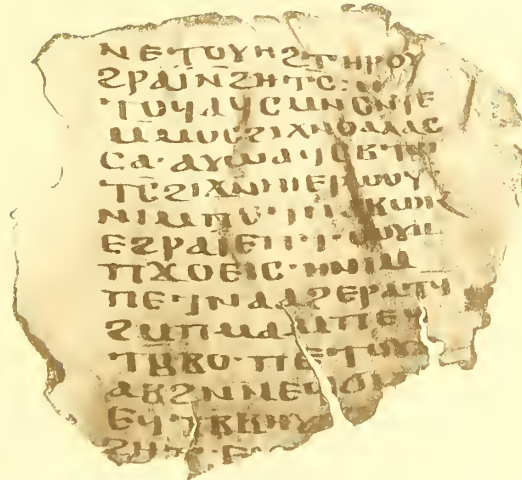 ⲛⲉⲧⲟⲩⲏϩⲧⲏⲣⲟⲩ
ϩⲣⲁⲓⲛϩⲏⲧⲥ:
ⲧⲟϥⲁϥⲥⲙⲛⲥⲛⲧⲉ
ⲙⲙⲟⲥϩⲓϫⲛⲑⲁⲗⲁⲥ
ⲥⲁ·ⲁⲩⲱⲁϥⲥⲃⲧⲱ
ⲧⲥϩⲓϫⲛⲛⲓⲉⲣⲱⲟⲩ
ⲛⲓⲙⲡⲉ ⲃⲱⲕ
ⲉϩⲣⲁⲓⲉⲡ ⲟⲟⲩⲙ
ⲡϫⲟⲉⲓⲥ·ⲏⲛⲓⲙ
ⲡⲉⲧⲛⲁⲁϩⲉⲣⲁⲧϥ
ϩⲙⲡⲙⲁⲙⲡⲉϥ
ⲧⲃⲃⲟ·ⲡⲉⲧⲟⲩⲁ
ⲁⲃϩⲛⲛⲉϥϭⲓ
ⲉϥⲧⲃⲃⲏⲩ
ϩⲏⲧ